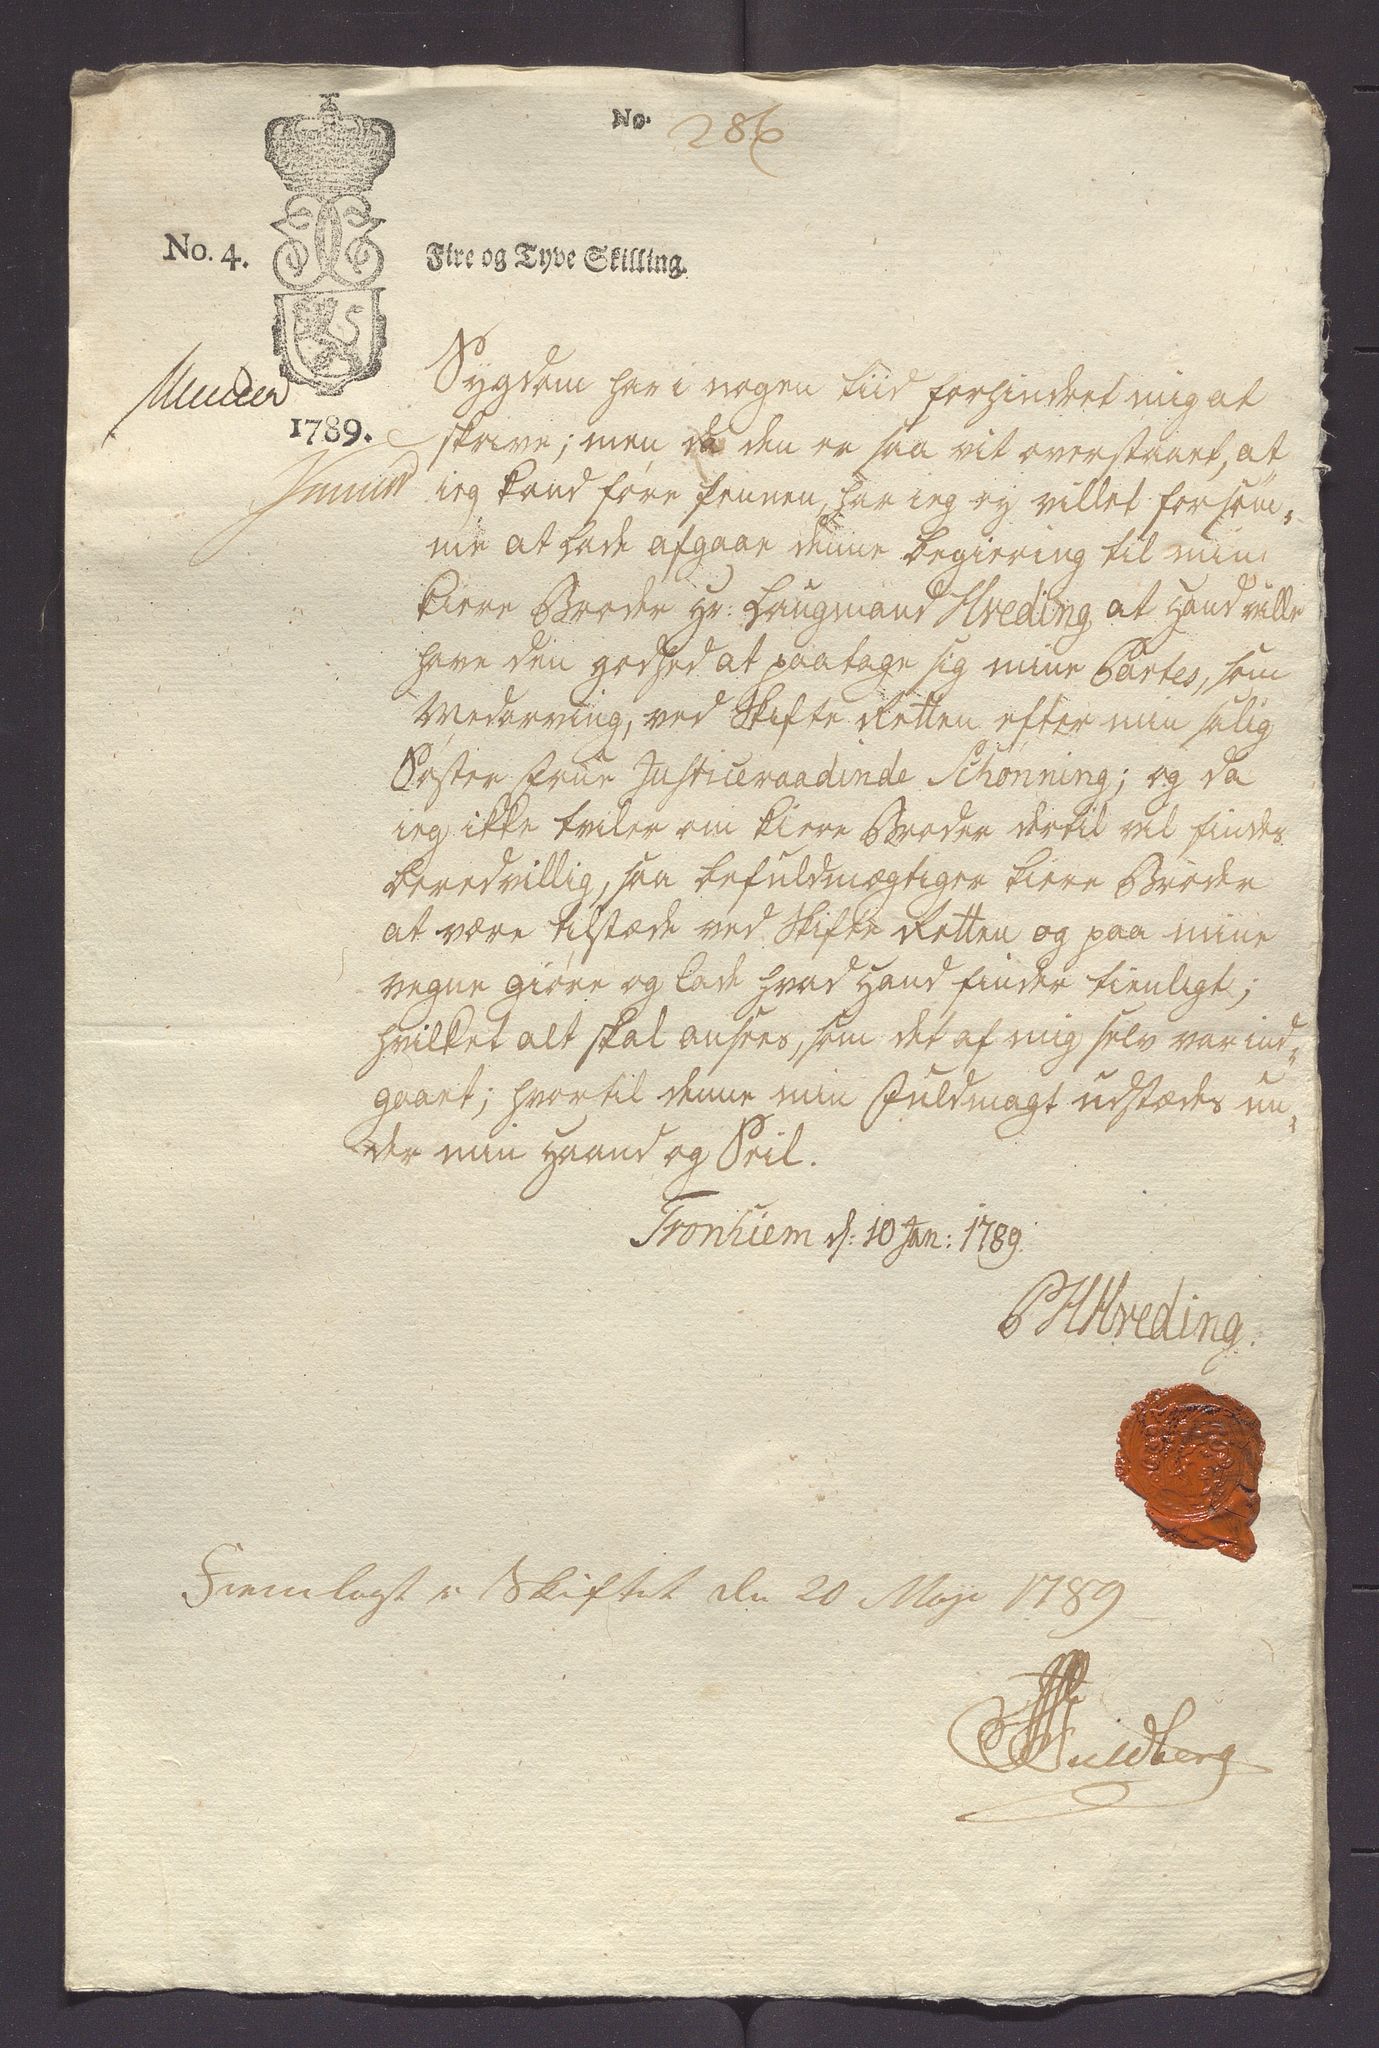 No. 286
No. 4.
Fire og Tyve Skilling.
1789.
Sygdom har i nogen tiid forhindret mig at
skrive; men da den er saa vit overstaaet, at
ieg kand føre Pennen, har ieg ey villet forsøm-
me at lade afgaae denne begiering til min
kiere Broder Hr: Laugmand Hveding at Hand ville
have den godhed at paatage sig mine Partes, som
Medarving, ved Skifte Retten efter min salig
Søster Frue Justiceraadinde Schønning; og da
ieg ikke tviler om kiere Broder dertil vil findes
beredvillig, saa befuldmægtiger kiere Broder
at være tilstæde ved Skifte Retten og paa mine
vegne giøre og lade hvad Hand finder tienligt;
hvilket alt skal ansees, som det af mig selv var ind-
gaaet; hvortil denne min Fuldmagt udstædes un-
der min Haand og Seil.
Tronhiem d: 10 Jan: 1789.
P H Hveding.
Fremlagt i Skiftet den 20 Maji 1789
Huidberg